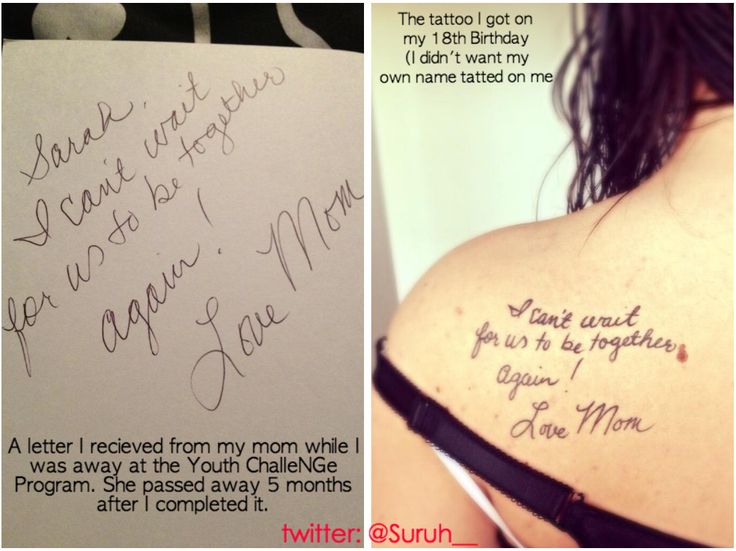 Sarah,
I can't wait
for us to be together
again!
Love Mom
A letter I recieved from my mom while I
was away at the Youth ChalleNGe
Program. She passed away 5 months
after I completed it.
The tattoo I got on
my 18th Birthday
(I didn't want my
own name tatted on me
I can't wait
for us to be together
Again!
Love Mom
twitter: @Suruh__